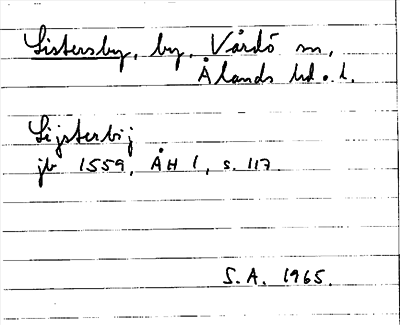 Listersby, by, Vårdö sn,
Ålands hd o. l.
Lijsterbij
jb 1559, ÅH 1, s. 117
S.A. 1965.